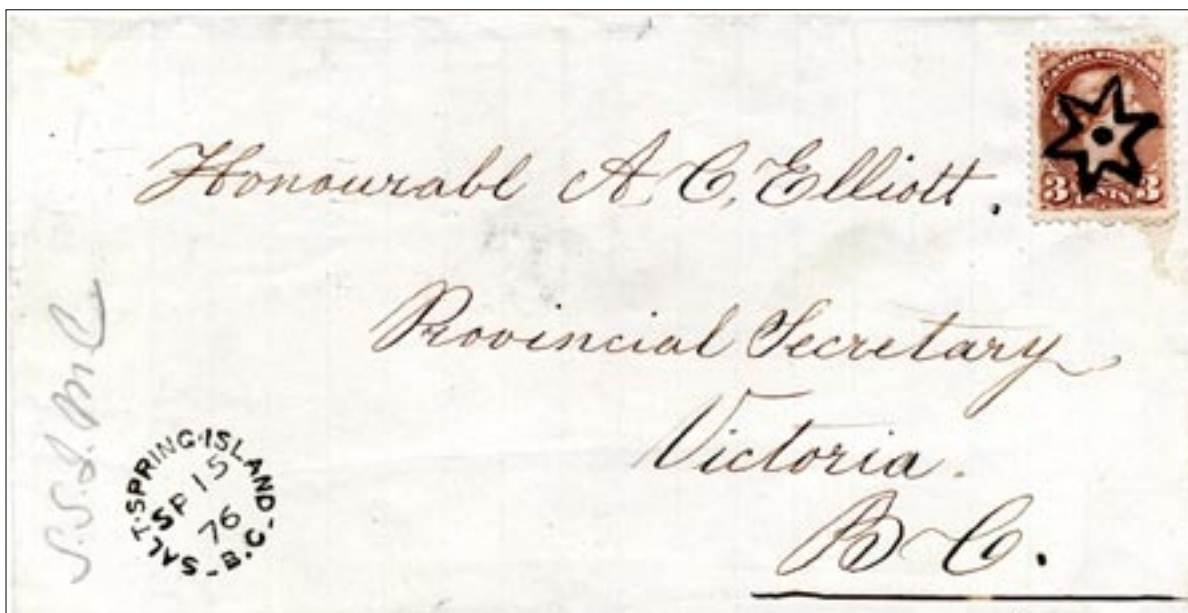 CANADA POSTAGE
3 CENTS 3
Honourabl A. C. Elliott.
Provincial Secretary
Victoria.
B C.
S. S. I. M. C
SALT·SPRING·ISLAND - B.C -
SP 15
76